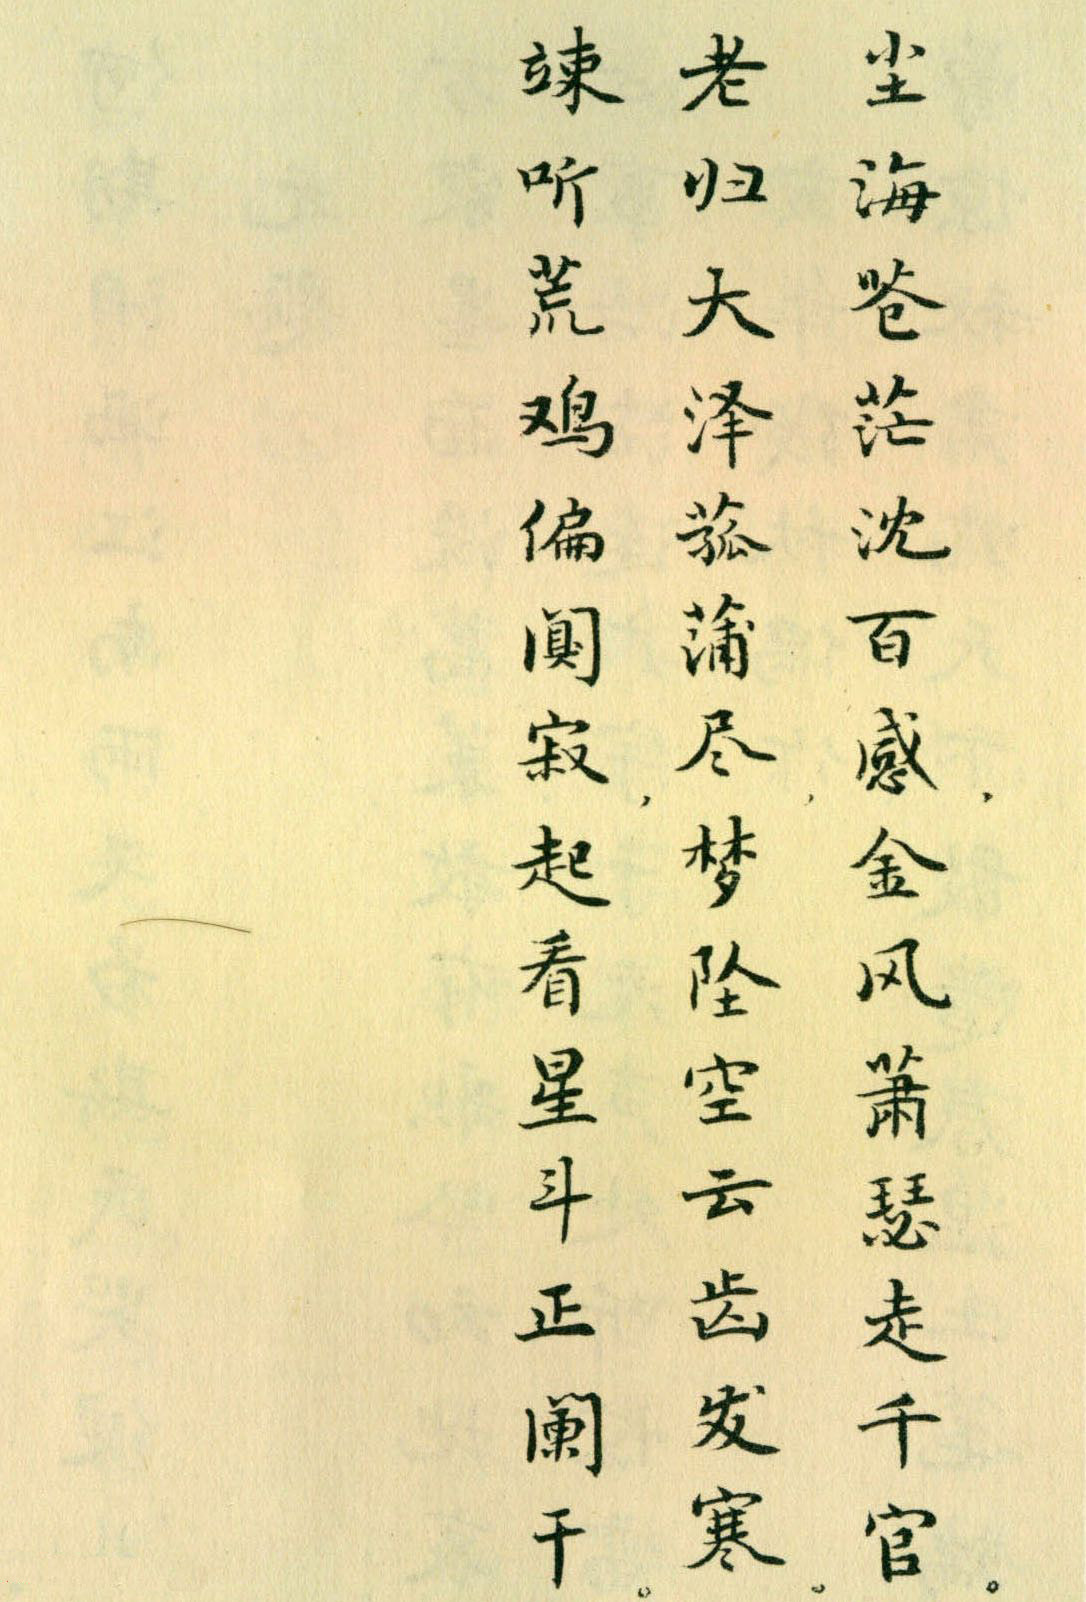 尘海苍茫沈百感，金风萧瑟走千官。
老归大泽菰蒲尽，梦坠空云齿发寒。
竦听荒鸡偏阒寂，起看星斗正阑干。